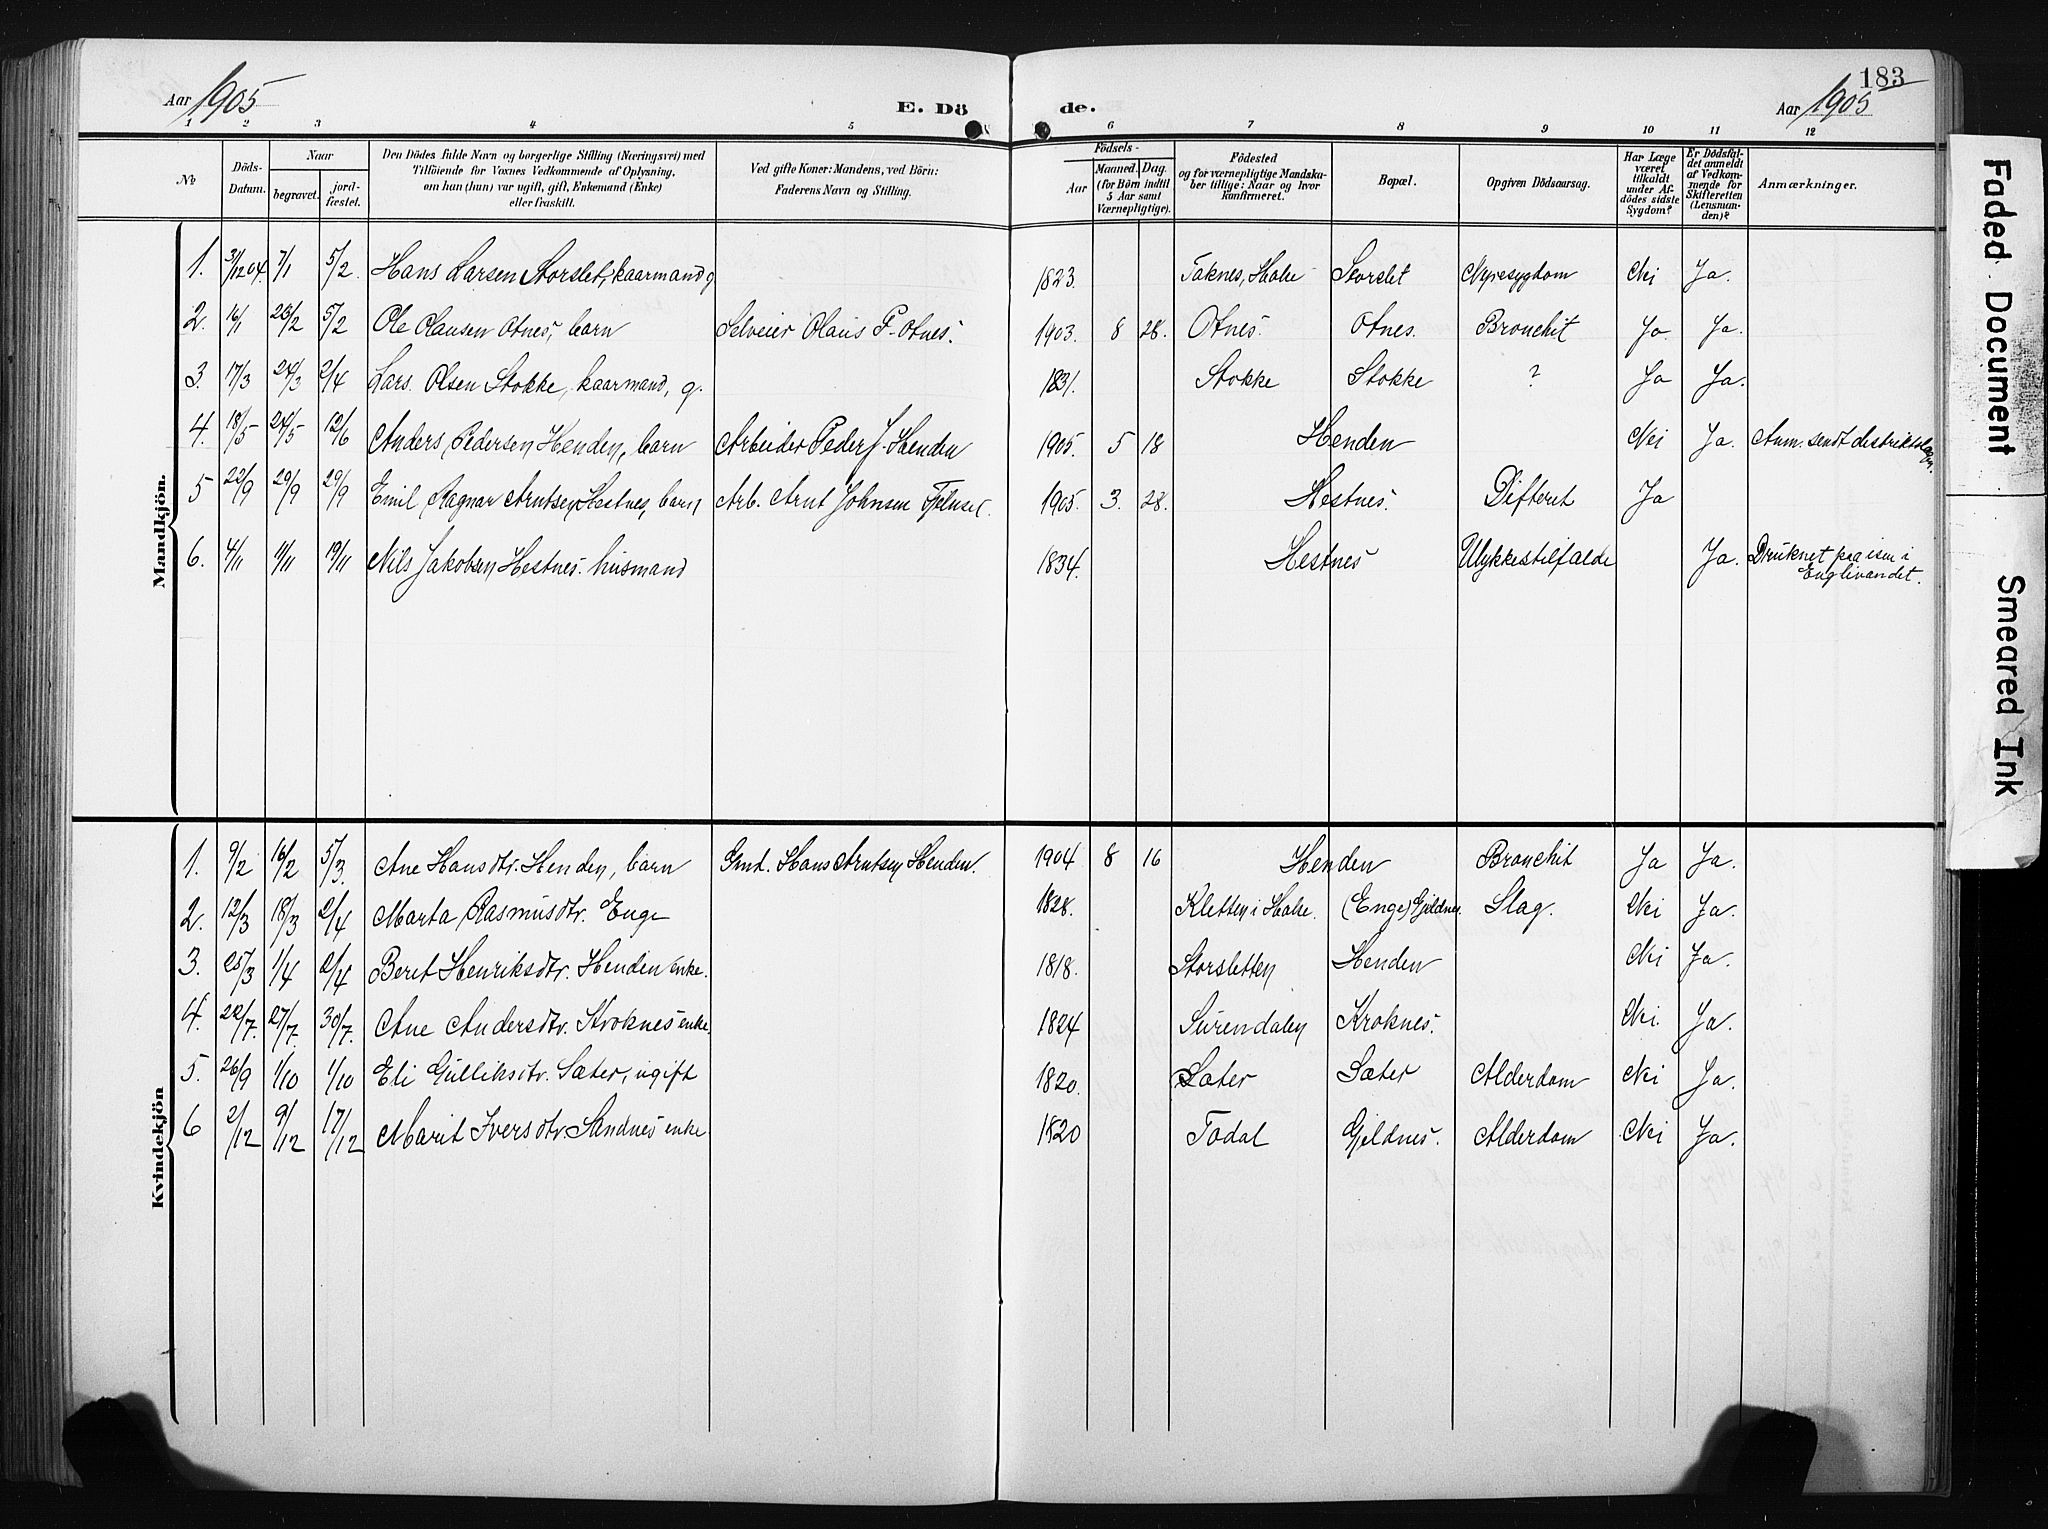 183
Aar 1905 E. Dö de. Aar 1905
1 2 3 4 5 6 7 8 9 10 11 12
No Döds-Datum. Naar begravet. jord-fæstet. Den Dödes fulde Navn og borgerlige Stilling (Næringsvei) med Tilföiende for Voxnes Vedkommende af Oplysning, om han (hun) var ugift, gift, Enkemand (Enke) eller fraskilt. Ved gifte Koner: Mandens, ved Börn: Faderens Navn og Stilling. Födsels- Aar Maaned. Dag. (for Börn indtil 5 Aar samt Værnepligtige). Födested og for værnepligtige Mandskaber tillige: Naar og hvor konfirmeret. Bopæl. Opgiven Dödsaarsag. Har Læge været tilkaldt under Afdödes sidste Sygdom? Er Dödsfaldet anmeldt af Vedkommende for Skifteretten (Lensmanden)? Anmærkninger.
Mandkjön.
1. 31/12 04 7/1 5/2 Hans Larsen Storslet, kaarmand g 1823. Taknes, Halse Storslet Nyresygdom Nei Ja.
2. 16/1 23/2 5/2 Ole Olausen Otnes, barn Selveier Olaus P. Otnes. 1903. 8 28. Otnes. Otnes. Bronchit Ja Ja.
3. 17/3 24/3 2/4 Lars Olsen Stokke, kaarmand, g. 1831. Stokke Stokke ? Ja Ja.
4. 18/5 24/5 12/6 Anders Pedersen Henden, barn Arbeider Peder J. Henden 1905. 5 18 Henden Nei Ja. Anm. sendt distriktslægen.
5 22/9 29/9 29/9 Emil Ragnar Arntsen Hestnes, barn Arb. Arnt Johnsen 1905. 3. 28. Hestnes. Difterit Ja
6. 4/11 11/11 19/11 Nils Jakobsen Hestnes. husmand 1834. Hestnes Ulykkestilfælde Ja. Druknet paa isen i Englivandet.
Kvindekjön
1. 9/2 16/2 5/3. Ane Hansdtr. Henden, barn Gmd. Hans Arntsen Henden. 1904 8 16 Henden Bronchit Ja Ja.
2. 12/3 18/3 2/4 Marta Rasmusdtr. Enge 1828. Kletten i Halse. (Enge) Gjeldnes. Slag. Nei Ja.
3. 25/3 1/4 2/4 Beret Henriksdtr. Henden enke. 1818. Storsletten Henden Nei Ja.
4. 22/7 27/7. 30/7. Ane Andersdtr. Kroknes enke. 1824 Surendalen Kroknes. Nei. Ja.
5. 26/9 1/10 1/10 Eli Gulliksdtr. Sæter, ugift 1820. Sæter Sæter Alderdom Nei Ja.
6 2/12 9/12 17/12 Marit Iversdtr Sandnes enke 1820 Todal Gjeldnes. Alderdom Nei Ja.
Faded Document
Smeared Ink